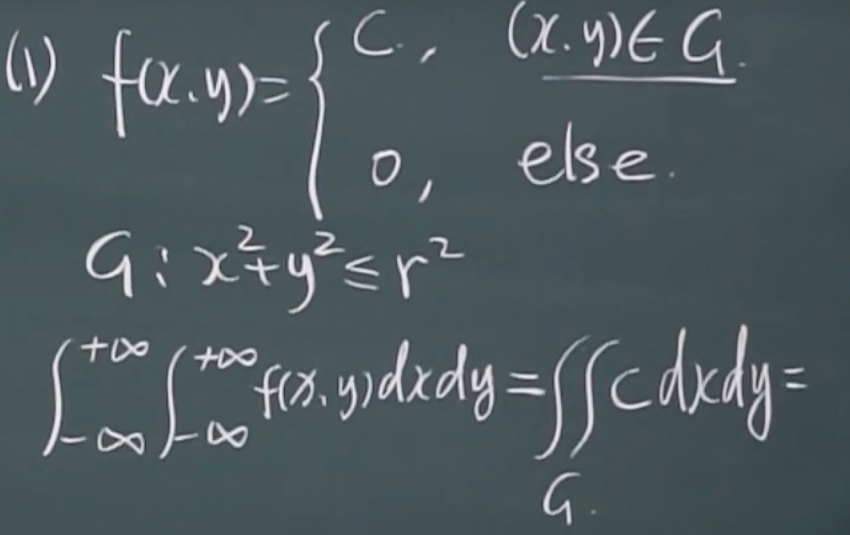 (1) f(x.y)= { C., (x.y)∈ G.
0, else.
G: x²+y²≤r²
∫_{-∞}^{+∞} ∫_{-∞}^{+∞} f(x.y)dxdy = ∬_{G.} C dxdy =